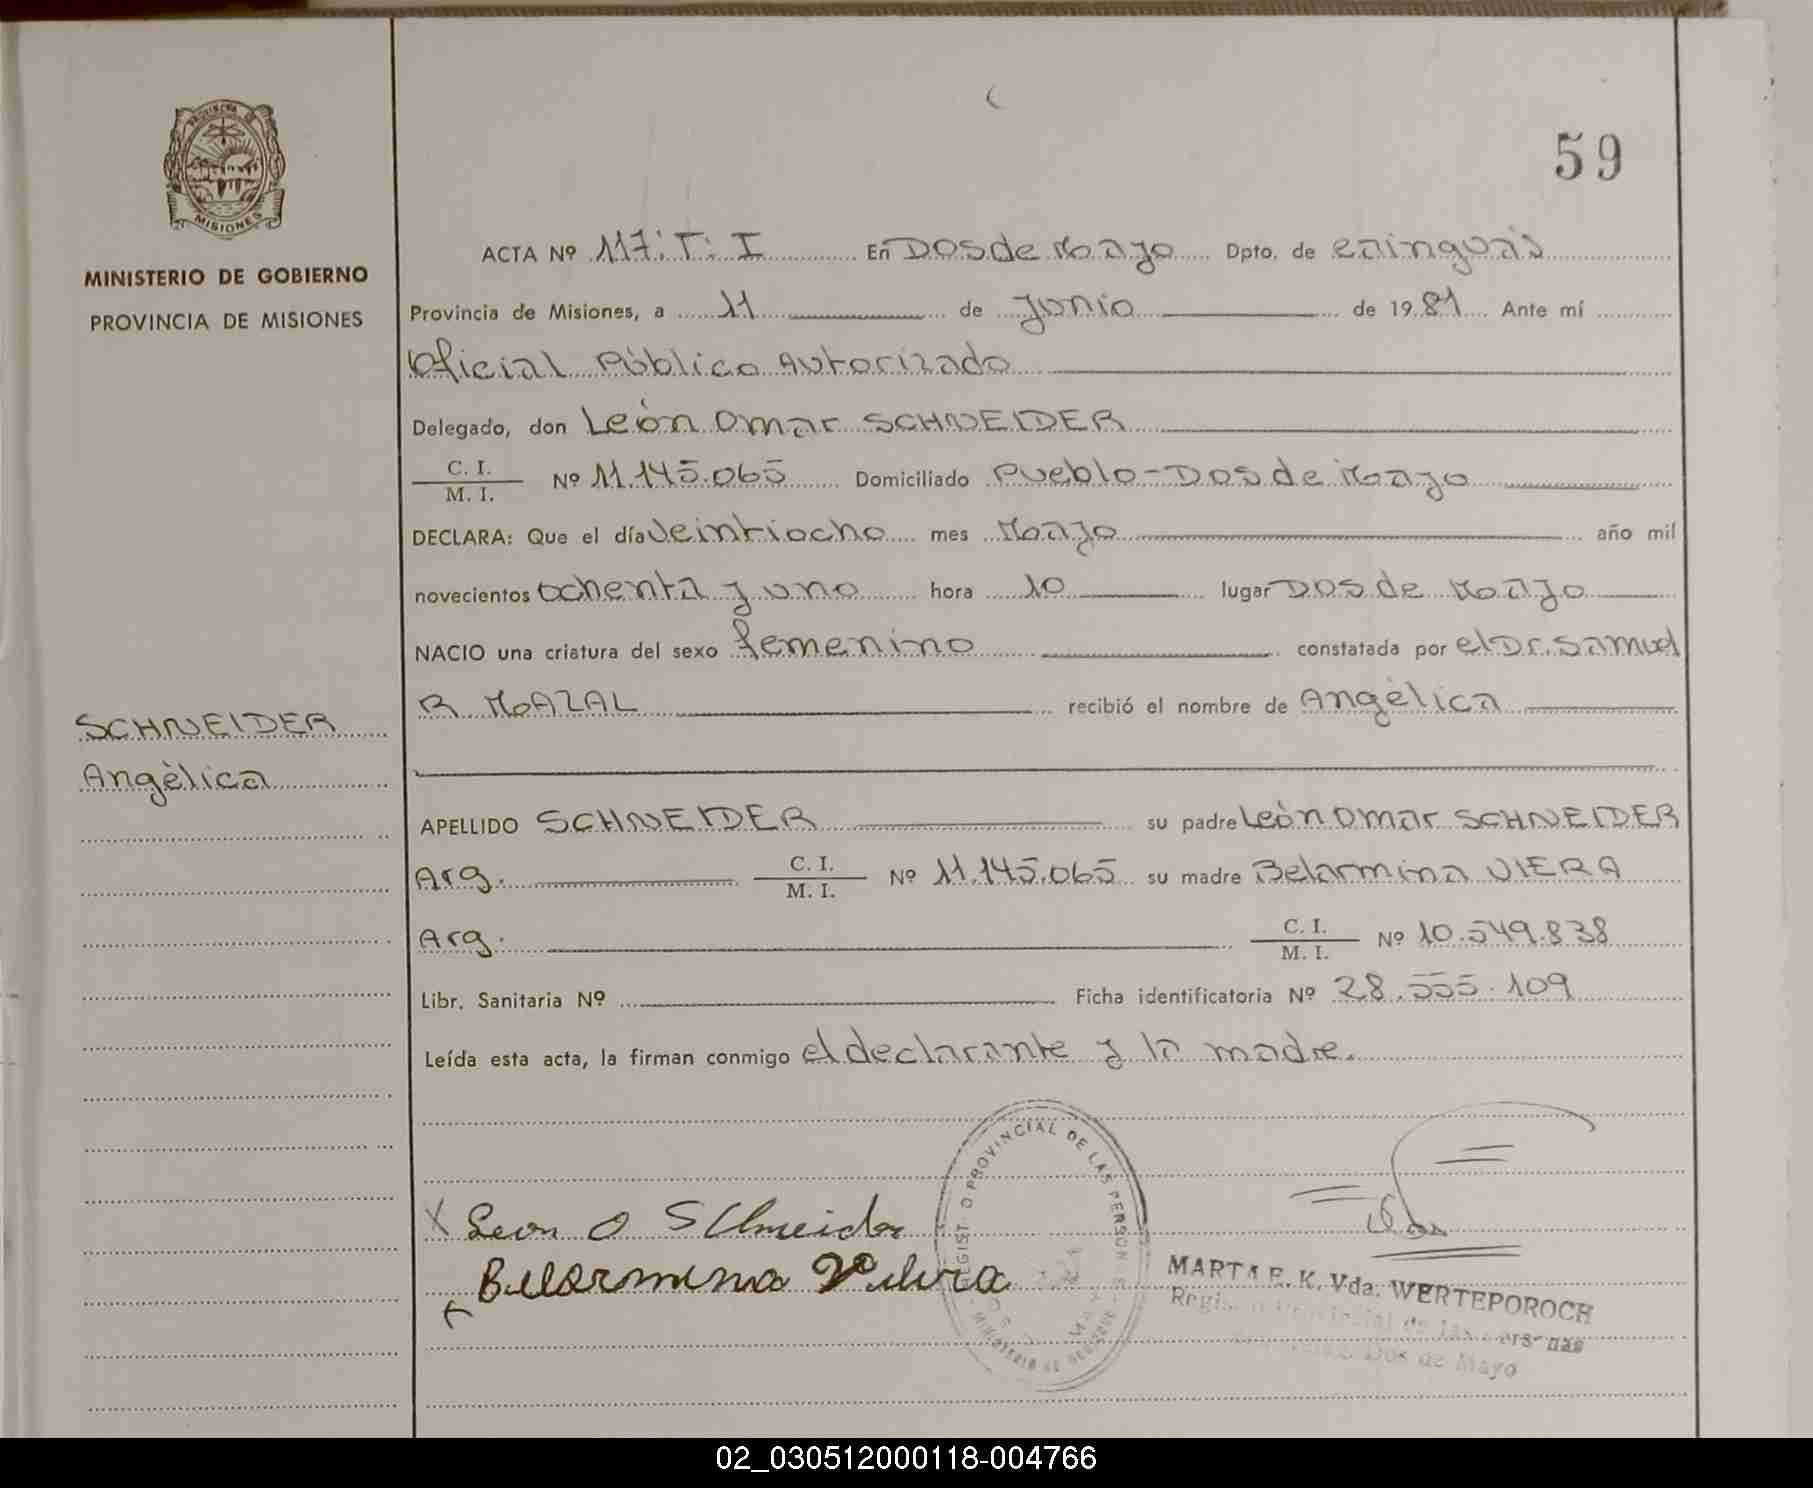 PROVINCIA DE
MISIONES
59
MINISTERIO DE GOBIERNO
PROVINCIA DE MISIONES
ACTA Nº 117: T: I En Dos de Mayo Dpto. de Cainguás
Provincia de Misiones, a 11 de Junio de 1981 Ante mí
Oficial Público Autorizado
Delegado, don León Omar SCHNEIDER
C. I.
M. I. Nº 11.145.065 Domiciliado Pueblo-Dos de Mayo
DECLARA: Que el día Veintiocho mes Mayo año mil
novecientos Ochenta y uno hora 10 lugar Dos de Mayo
NACIO una criatura del sexo femenino constatada por el Dr. Samuel
R MAZAL recibió el nombre de Angèlica
SCHNEIDER
Angèlica
APELLIDO SCHNEIDER su padre Leòn Omar SCHNEIDER
Arg. C. I.
M. I. Nº 11.145.065 su madre Belarmina VIERA
Arg. C. I.
M. I. Nº 10.549.838
Libr. Sanitaria Nº Ficha identificatoria Nº 28.555.109
Leída esta acta, la firman conmigo el declarante y la madre.
REGIST O PROVINCIAL DE LAS PERSON
X Leon O SChneider
Belarmina
MARTA E. K. Vda. WERTEPOROCH
Dos de Mayo
02_030512000118-004766